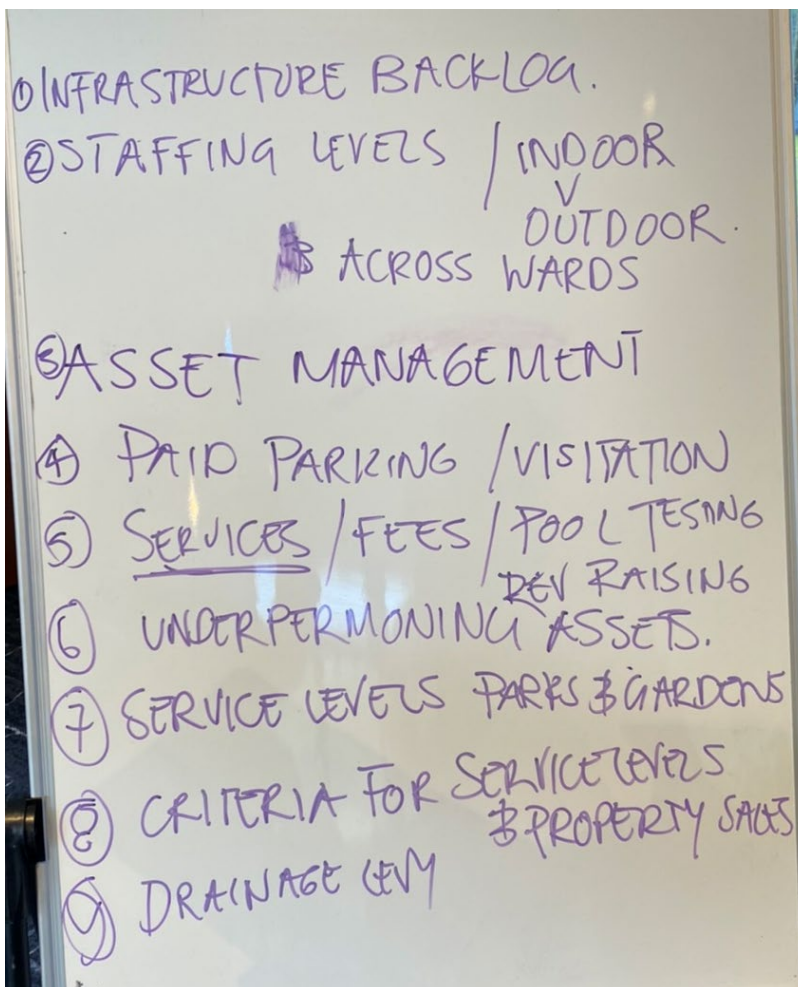 ① INFRASTRUCTURE BACKLOG.
② STAFFING LEVELS / INDOOR
V
OUTDOOR.
& ACROSS WARDS
③ ASSET MANAGEMENT
④ PAID PARKING / VISITATION
⑤ SERVICES / FEES / POOL TESTING
REV RAISING
⑥ UNDERPERMONING ASSETS.
⑦ SERVICE LEVELS PARKS & GARDENS
⑧ CRITERIA FOR SERVICE LEVELS
& PROPERTY SALES
⑨ DRAINAGE LEVY